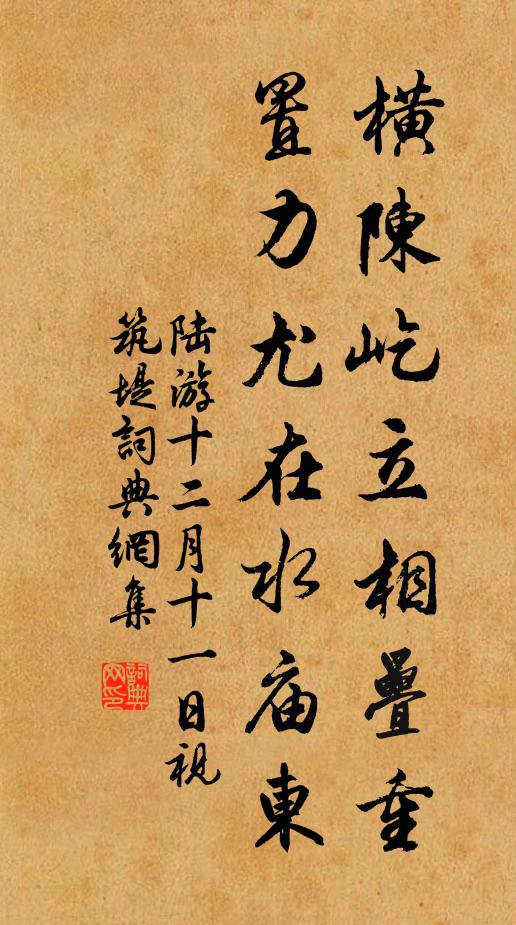 橫陳屹立相疊重
置力尤在水庙東
陆游十二月十一日視
筑堤詞典網集
詞典网印